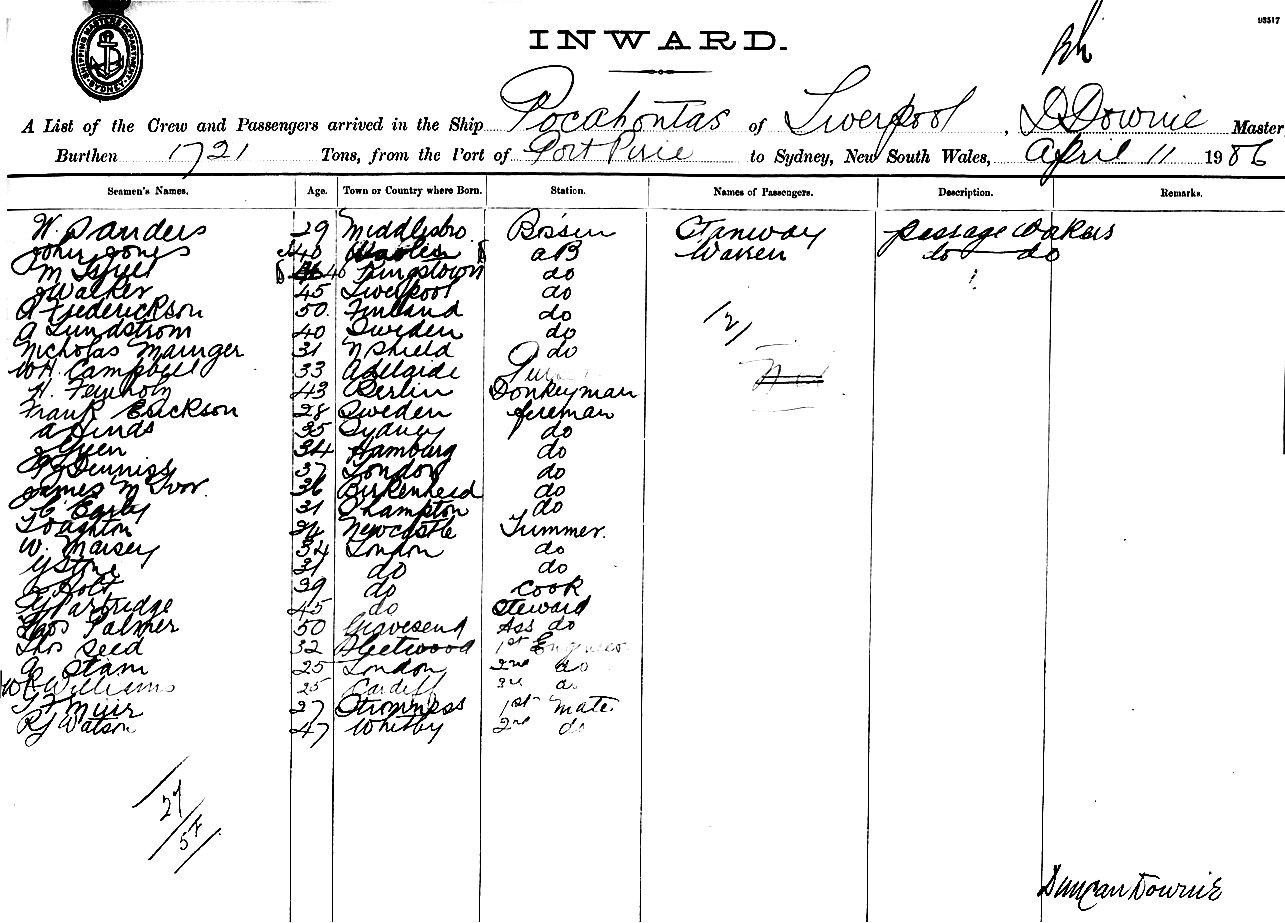 93517
SHIPPING MASTERS DEPARTMENT SYDNEY
INWARD.
A List of the Crew and Passengers arrived in the Ship Pocahontas of Liverpool, D Downie Master
Burthen 1721 Tons, from the Port of Port Pirie to Sydney, New South Wales, April 11 1986
Seamen's Names. Age. Town or Country where Born. Station. Names of Passengers. Description. Remarks.
W. Sanders 29 Middlesbro Bossun Stanway passage workers
John Jones 40 a B Warren do do
M 40 Kingstown do
J Walker 45 Liverpool do
A Frederickson 50. Finland do
A Lundstrom 40 Sweden do
Nicholas Mainger 31 N Shield do
WH Campbell 33 Adelaide
H. 43 Berlin Donkeyman
Frank Erickson 28 Sweden fireman
A Hinds 35 Sydney do
Green 34 Hamburg do
Denniss 37 London do
James McIvor. 36 Birkenhead do
Early 31 Shampton do
34 Newcastle Trimmer.
W. Maisey 34 London do
31 do do
Holt 39 do Cook
Partridge 45 do Steward
Thos Palmer 50 Gravesend Ass do
Thos Seed 32 Fleetwood 1st Engineer
A Stam 25 London 2nd do
W R Williams 25 Cardiff 3rd
Muir 27 Stromness 1st Mate
RJ Watson 47 Whitby 2nd do
27/57
Duncan Downie